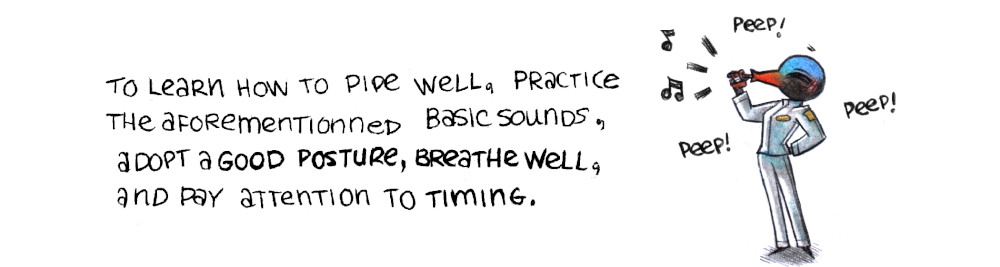 Peep!
TO LEARN HOW TO PIPE WELL, PRACTICE
THE AFOREMENTIONNED BASIC SOUNDS,
ADOPT A GOOD POSTURE, BREATHE WELL,
AND PAY ATTENTION TO TIMING.
Peep!
Peep!